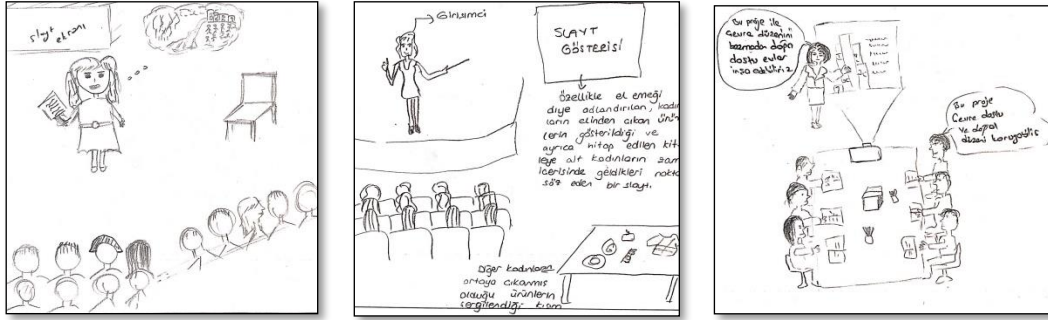 slayt
ekranı
Girişimci
SLAYT
GÖSTERİSİ
özellikle el emeği
diye adlandırılan, kadın
ların elinden çıkan ürün
lerin gösterildiği ve
ayrıca hitap edilen kit
leye ait kadınların zam
içerisinde geldikleri nokta
söz eden bir slayt.
Diğer kadınların
ortaya çıkarmış
olduğu ürünlerin
sergilendiği kısım
Bu proje ile
çevre düzenini
bozmadan doğa
dostu evler
inşa edebiliriz
Bu proje
çevre dostu
ve doğal
düzeni koruyabilir